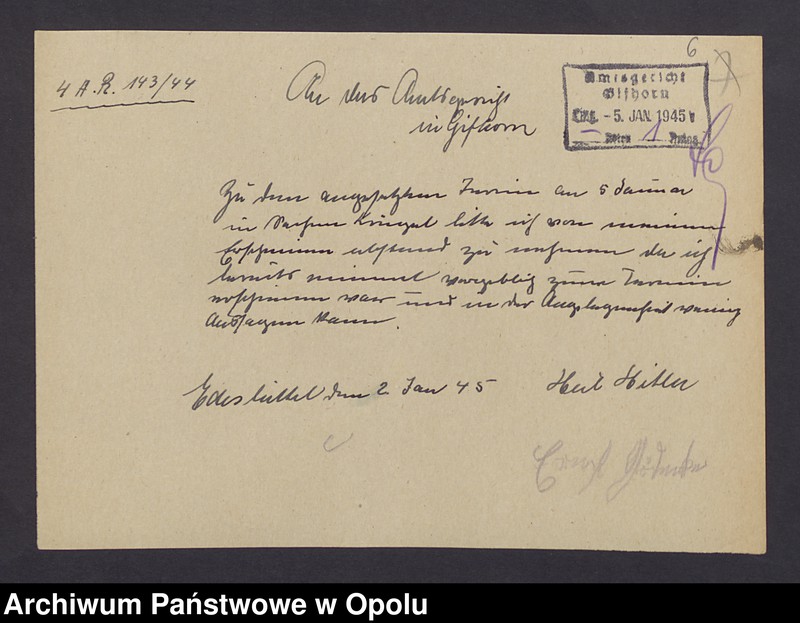 6
4 A.R. 143/44
An das Amtsgericht
in Gifhorn
Amtsgericht
Gifhorn
Eing. - 5. JAN. 1945
Zu dem angesetzten Termin am 5 Januar
in Sachen bitte ich von meinem
Erscheinen abstand zu nehmen da ich
bereits einmal vergeblich zum Termin
erschienen war und in der Angelegenheit wenig
Aussagen kann.
Edesbüttel den 2 Jan 45 Heil Hitler
Ernst
Archiwum Państwowe w Opolu